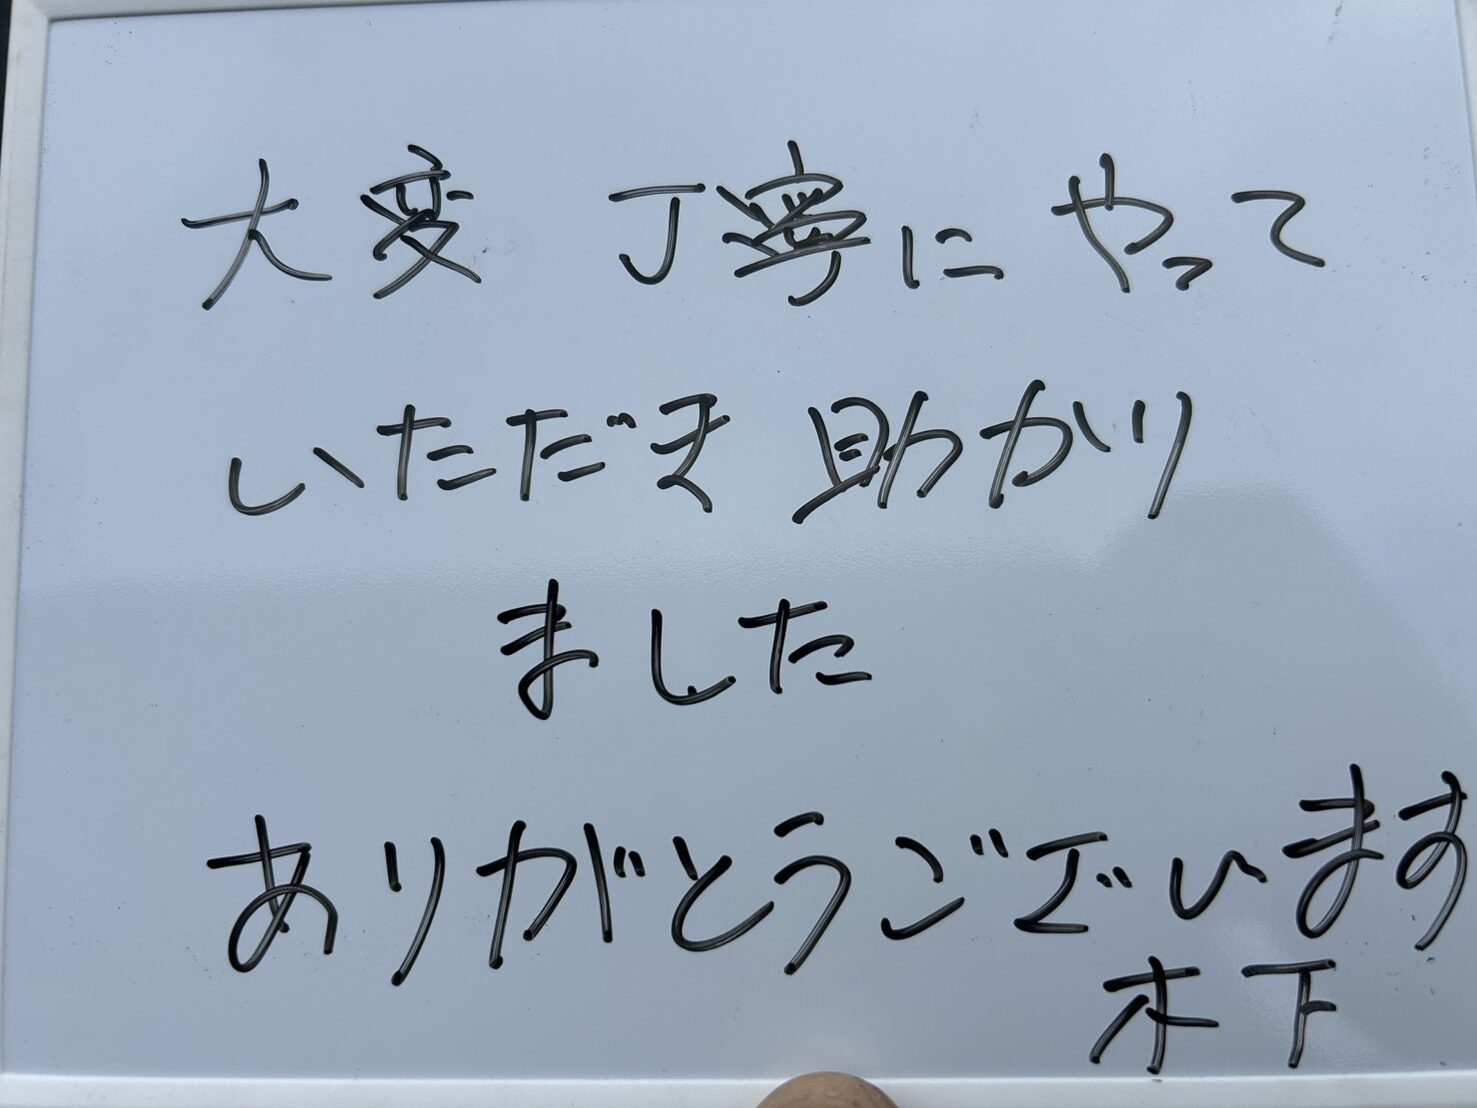 大変 丁寧に やって
いただき 助かり
ました
ありがとうございます
木下